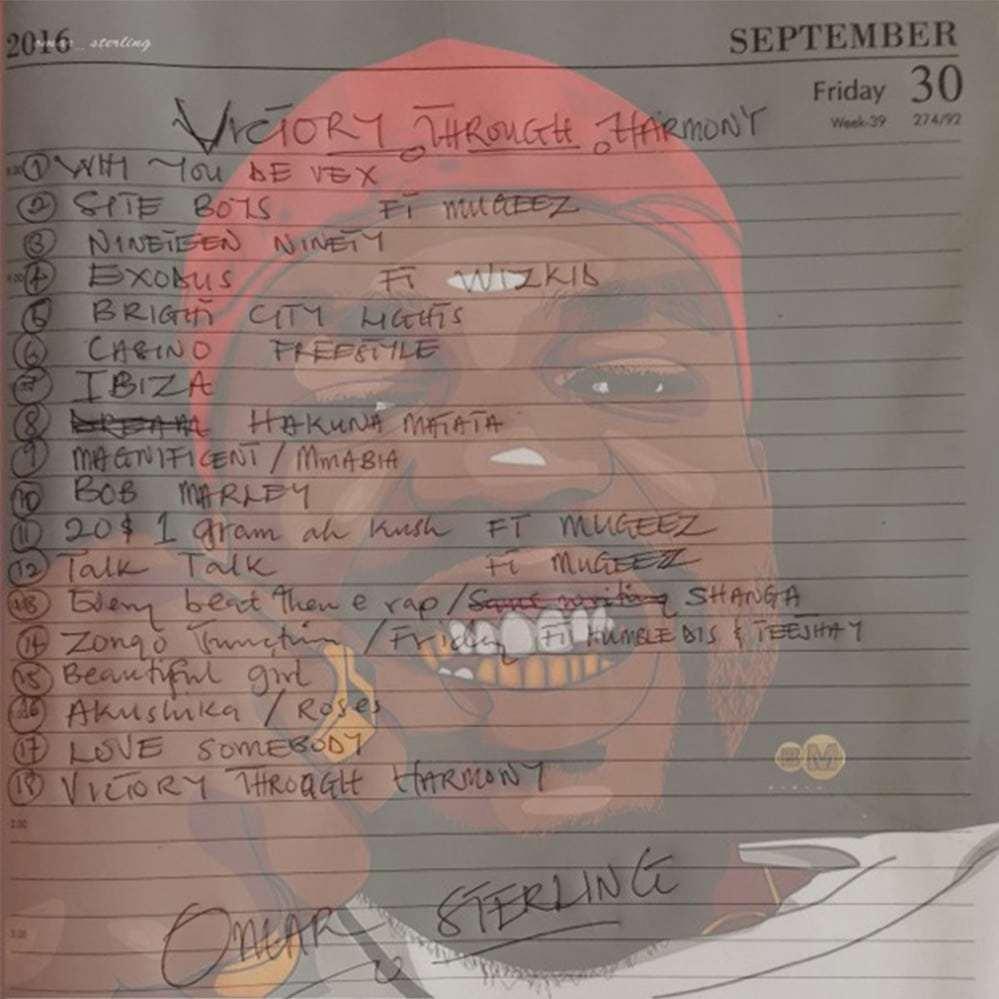 2016 omar_sterling SEPTEMBER
Friday 30
Week-39 274/92
VICTORY THROUGH HARMONY
1 WHY YOU DE VEX
2 SITE BOYS FT MUGEEZ
3 NINETEEN NINETY
4 EXODUS FT WIZKID
5 BRIGHT CITY LIGHTS
6 CASINO FREESTYLE
7 IBIZA
8 DREAM HAKUNA MATATA
9 MAGNIFICENT / MMABIA
10 BOB MARLEY
11 20$ 1 gram ah kush FT MUGEEZ
12 Talk Talk FT MUGEEZ
13 Every beat then e rap / Sans writing SHANGA
14 Zongo Junction / Friday FT HUMBLE DIS & TEEJHAY
15 Beautiful girl
16 Akushika / Roses
17 LOVE SOMEBODY
18 VICTORY THROUGH HARMONY
2:00
BM
3:00
OMAR STERLING